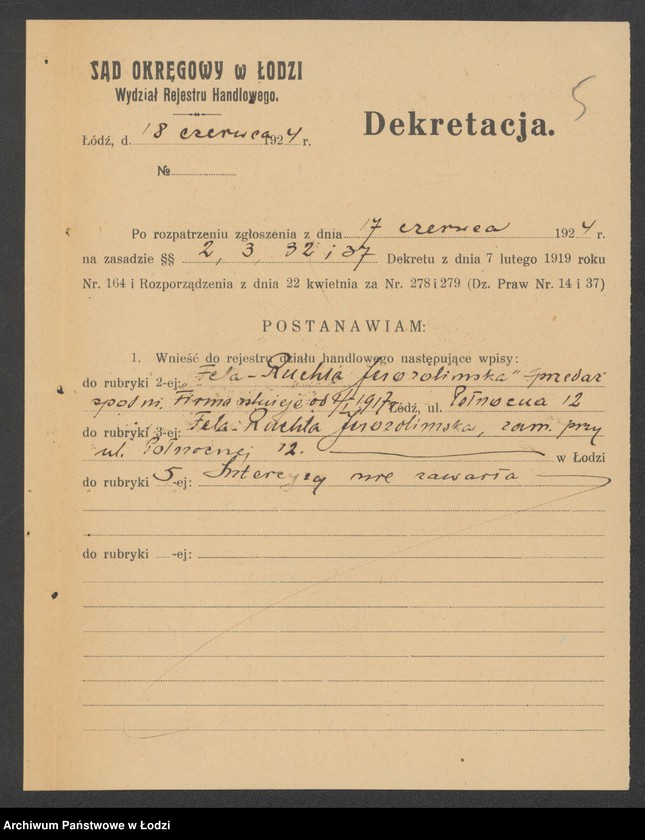 SĄD OKRĘGOWY w ŁODZI
Wydział Rejestru Handlowego.
5
Dekretacja.
Łódź, d. 18 czerwca 1924 r.
№
Po rozpatrzeniu zgłoszenia z dnia 17 czerwca 1924 r.
na zasadzie §§ 2, 3, 32 i 37 Dekretu z dnia 7 lutego 1919 roku
Nr. 164 i Rozporządzenia z dnia 22 kwietnia za Nr. 278 i 279 (Dz. Praw Nr. 14 i 37)
POSTANAWIAM:
1. Wnieść do rejestru działu handlowego następujące wpisy:
do rubryki 2-ej: „Fela-Ruchla Jerozolimska" sprzedaż
Firma istnieje od 1917 r. Łódź, ul. Północna 12
do rubryki 3-ej: Fela-Ruchla Jerozolimska, zam. przy
ul. Północnej 12. w Łodzi
do rubryki 5-ej: Intercyzy nie zawarła
do rubryki -ej:
Archiwum Państwowe w Łodzi